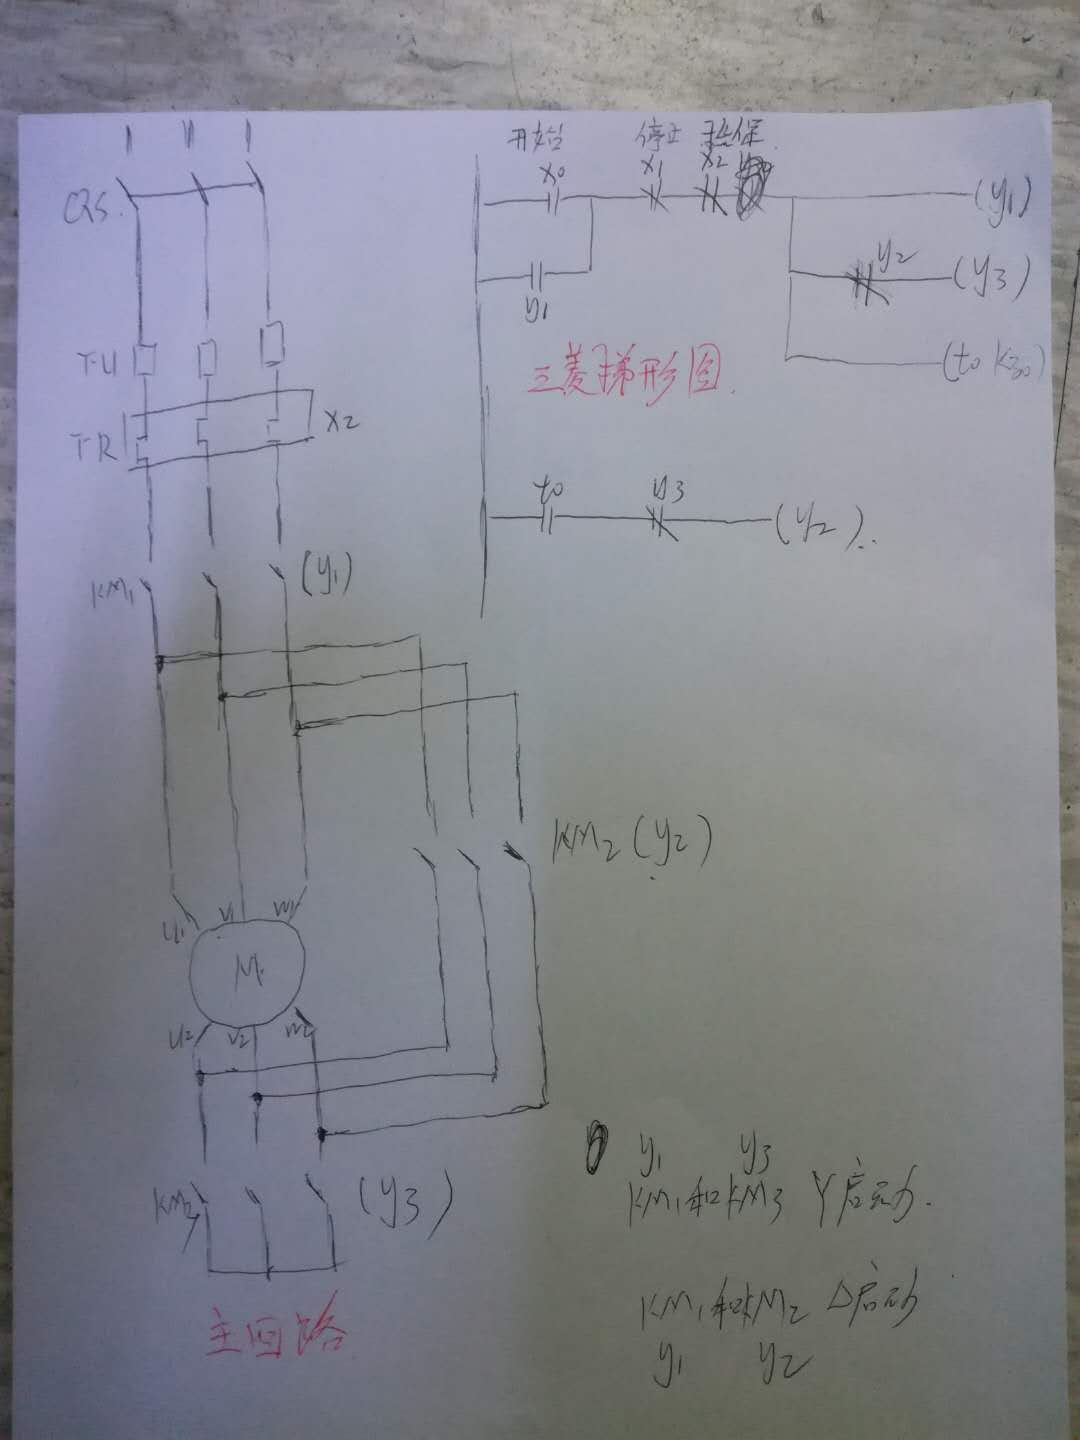 开始 停止 热保
X0 X1 X2
(y1)
QS.
y2
(y3)
y1
(t0 K30)
三菱梯形图.
T-U
T-R
X2
t0 y3
(y2)..
KM1
(y1)
KM2 (y2)
U1 V1 W1
M
U2 V2 W2
y1 y3
KM1和KM3 Y启动.
KM3
(y3)
KM1和KM2 △启动
y1 y2
主回路